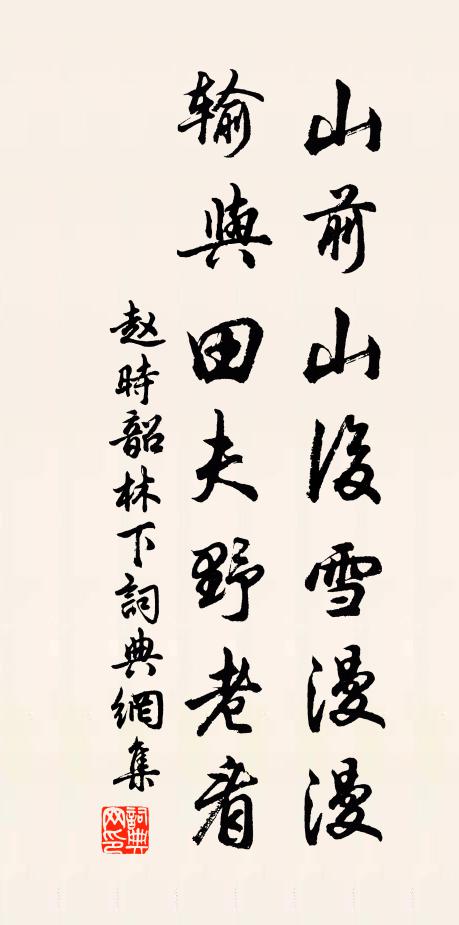 山前山後雪漫漫
輸與田夫野老看
赵時韶林下詞典網集
詞典
网印